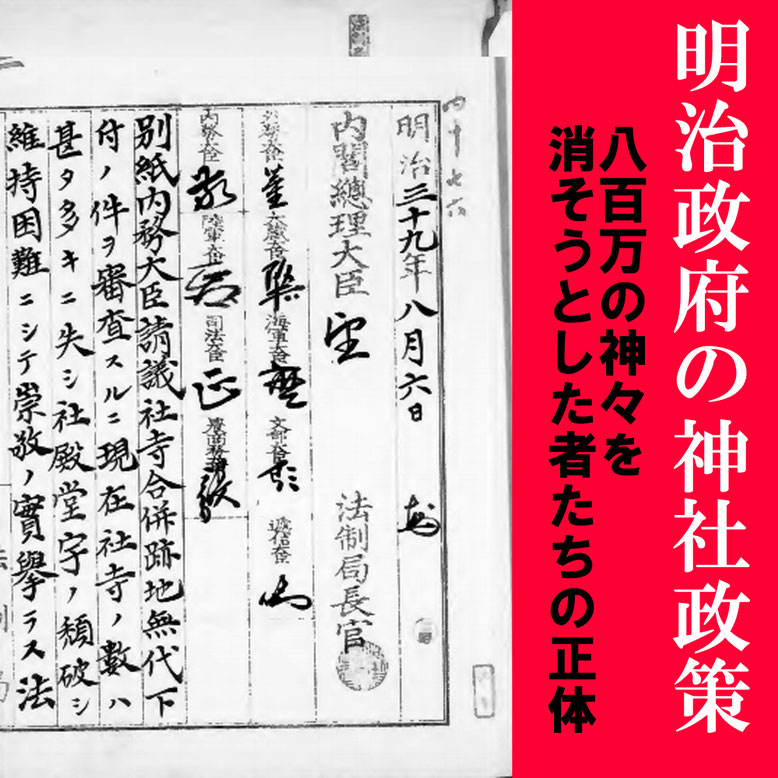 明治政府の神社政策
八百万の神々を
消そうとした者たちの正体
明治三十九年八月六日
内閣總理大臣
法制局長官
外務大臣
大藏大臣
海軍大臣
文部大臣
遞信大臣
内務大臣
陸軍大臣
司法大臣
農商務大臣
別紙内務大臣請議社寺合併跡地無代下
付ノ件ヲ審査スルニ現在社寺ノ數ハ
甚タ多キニ失シ社殿堂宇ノ頽破シ
維持困難ニシテ崇敬ノ實擧ラス法